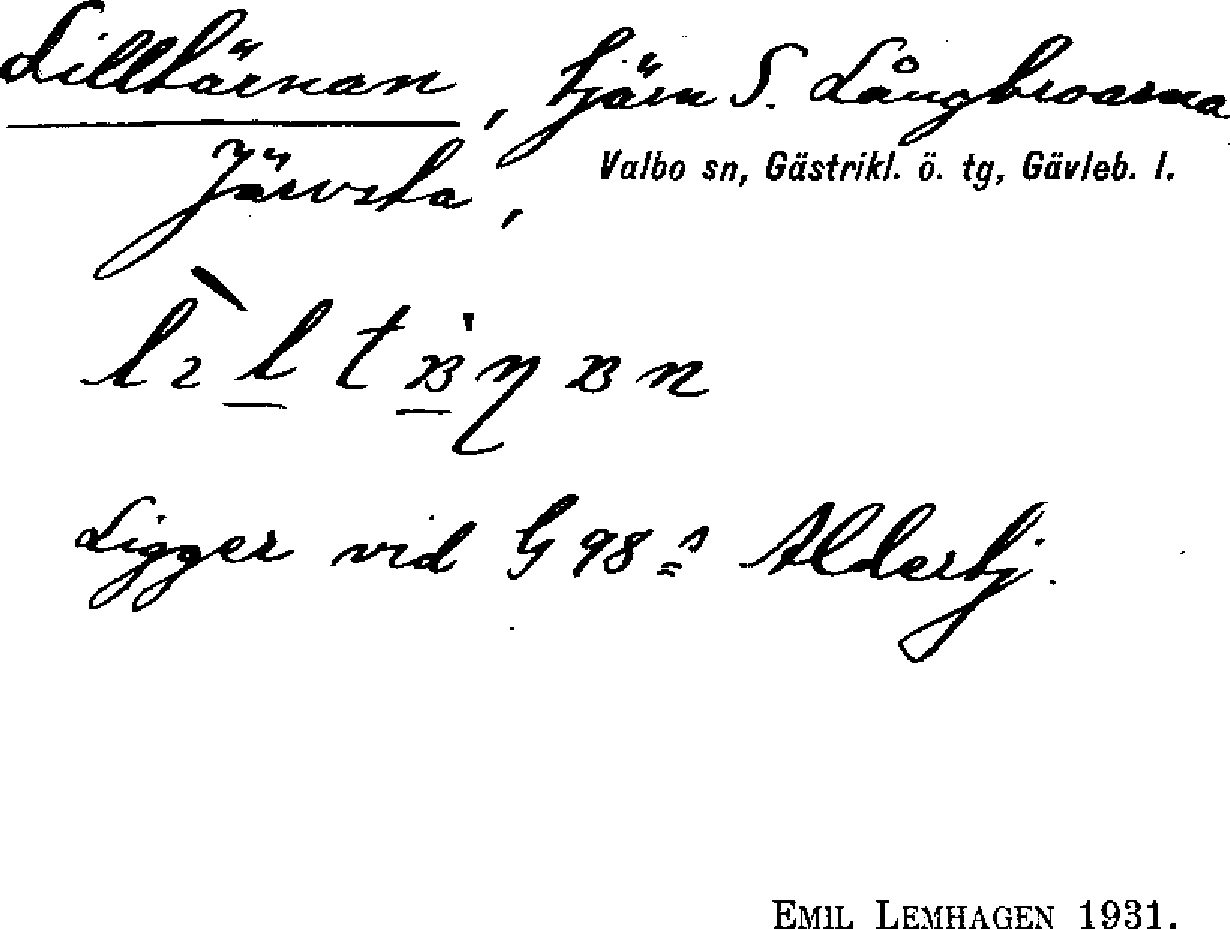 Lilltärnan, tjärn S. Långbroarna
Järvsta, Valbo sn, Gästrikl. ö. tg, Gävleb. l.
Ligger vid G 98 Aldertj.
EMIL LEMHAGEN 1931.